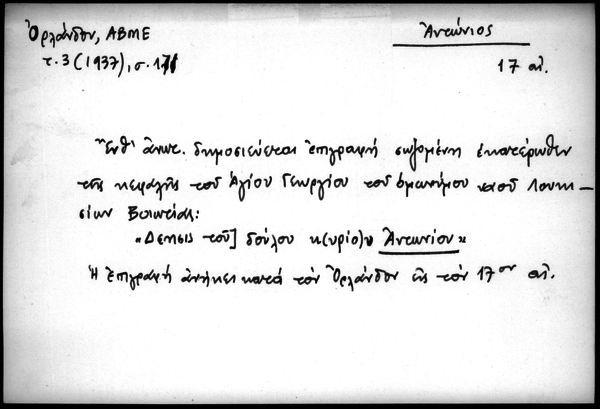 Ὀρλάνδου, ΑΒΜΕ
Ἀντώνιος
τ. 3 (1937), σ. 171
17 αἰ.
Ἔνθ' ἀνωτ. δημοσιεύεται ἐπιγραφή σωζομένη ἑκατέρωθεν
τῆς κεφαλῆς τοῦ Ἁγίου Γεωργίου τοῦ ὁμωνύμου ναοῦ Λουκι-
σίων Βοιωτίας:
«Δέησις τοῦ] δούλου κ(υρίο)υ Ἀντωνίου»
Ἡ ἐπιγραφή ἀνήκει κατά τόν Ὀρλάνδον εἰς τόν 17ον αἰ.